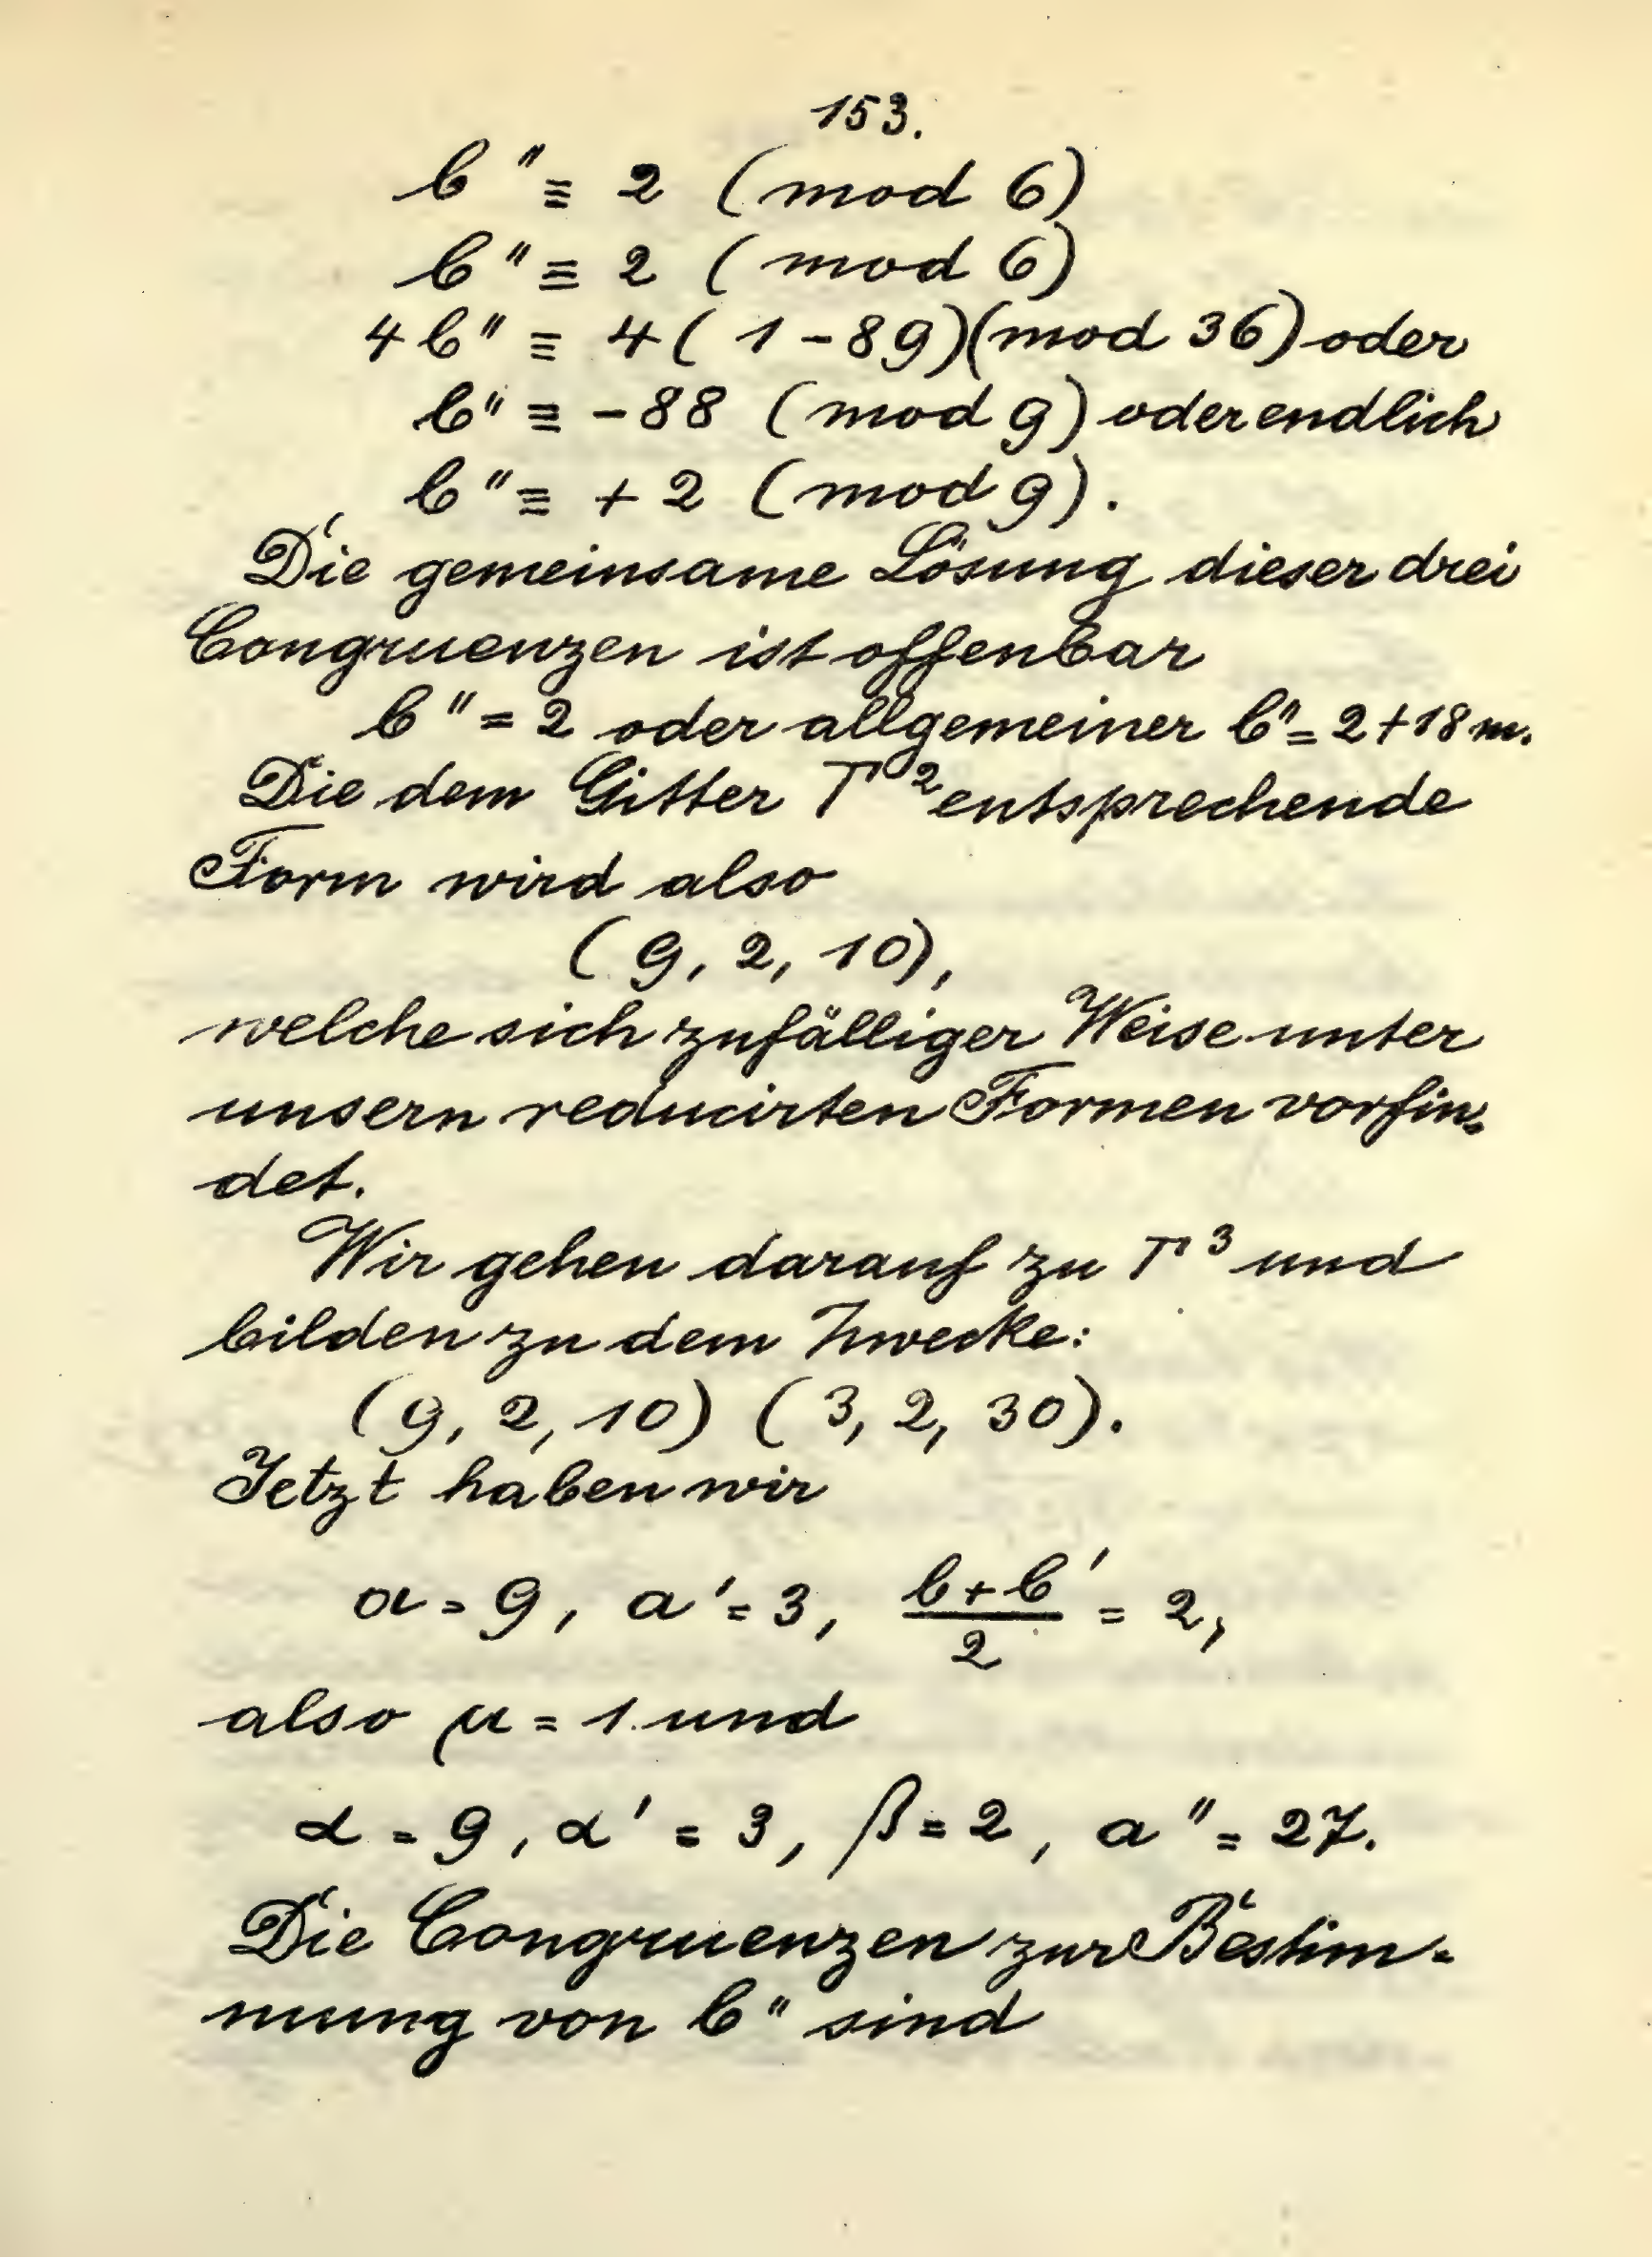 153.
b'' ≡ 2 (mod 6)
b'' ≡ 2 (mod 6)
4b'' ≡ 4(1-89)(mod 36) oder
b'' ≡ -88 (mod 9) oder endlich
b'' ≡ +2 (mod 9).
Die gemeinsame Lösung dieser drei
Congruenzen ist offenbar
b'' = 2 oder allgemeiner b'' = 2+18m.
Die dem Gitter Γ² entsprechende
Form wird also
(9, 2, 10),
welche sich zufälliger Weise unter
unsern reducirten Formen vorfin-
det.
Wir gehen darauf zu Γ³ und
bilden zu dem Zwecke:
(9, 2, 10) (3, 2, 30).
Jetzt haben wir
a = 9, a' = 3, (b+b')/2 = 2,
also μ = 1 und
α = 9, α' = 3, β = 2, a'' = 27.
Die Congruenzen zur Bestim-
mung von b'' sind